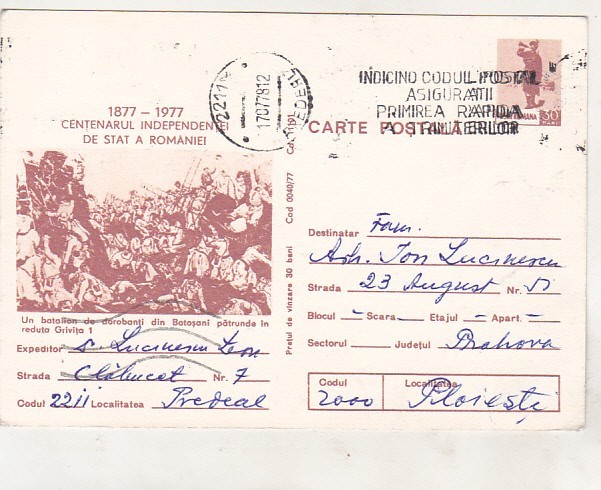 1877 - 1977
CENTENARUL INDEPENDENȚEI
DE STAT A ROMÂNIEI
2211
170778.12
PREDEAL
INDICIND CODUL POSTAL
ASIGURATI
PRIMIREA RAPIDA
A TRIMITERILOR
CARTE POȘTALĂ
Un batalion de dorobanți din Botoșani pătrunde în
reduta Grivița 1
Expeditor S. Lucinescu Leon
Strada Clăbucet Nr. 7
Codul 2211 Localitatea Predeal
Prețul de vînzare 30 bani Cod 0040/77
Destinatar Fam.
Arh. Ion Lucinescu
Strada 23 August Nr.
Blocul — Scara — Etajul — Apart. —
Sectorul — Județul Prahova
Codul Localitatea
2000 Ploiești